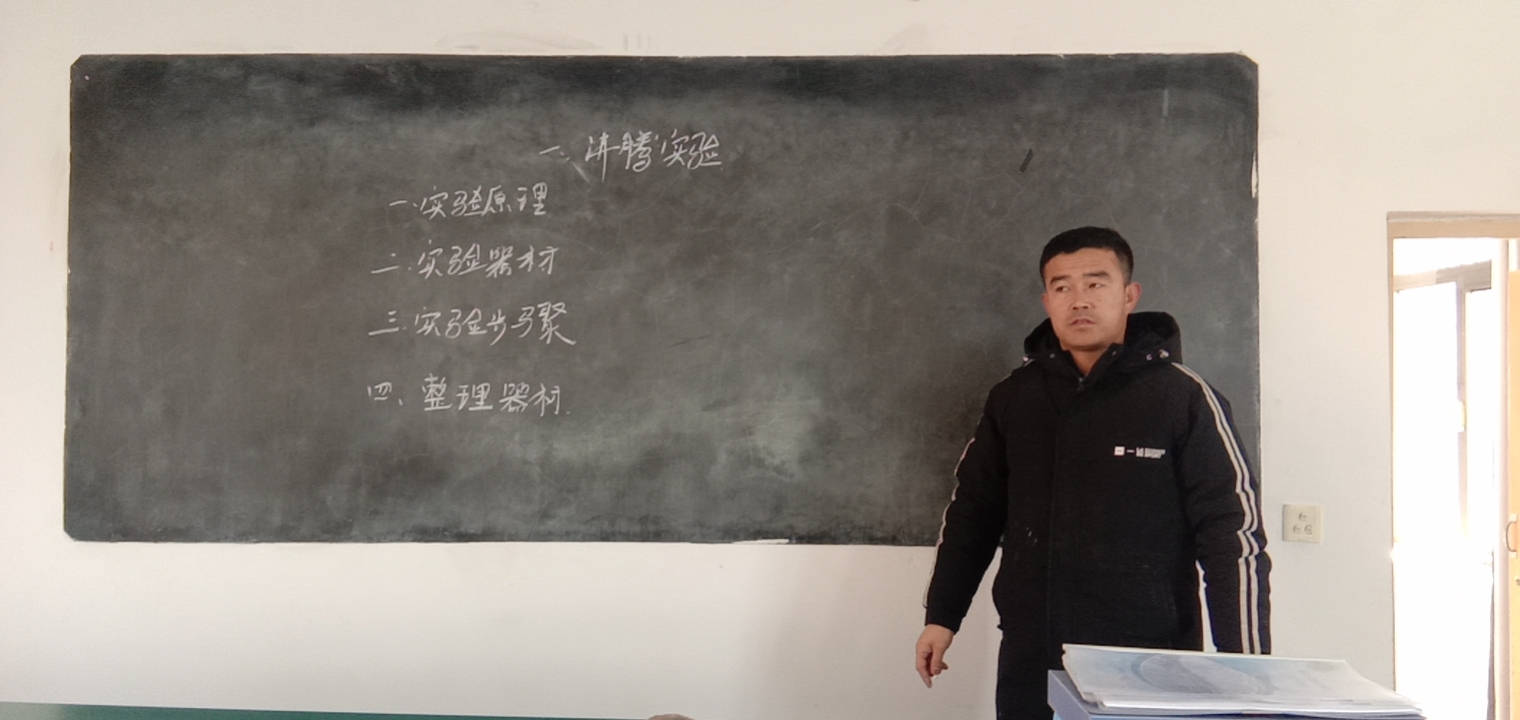 一、沸腾实验
一、实验原理
二、实验器材
三、实验步骤
四、整理器材